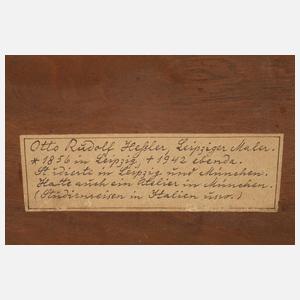 Otto Rudolf Heßler, Leipziger Maler.
* 1856 in Leipzig, † 1942 ebenda.
Studierte in Leipzig und München.
Hatte auch ein Atelier in München.
(Studienreisen in Italien usw.)